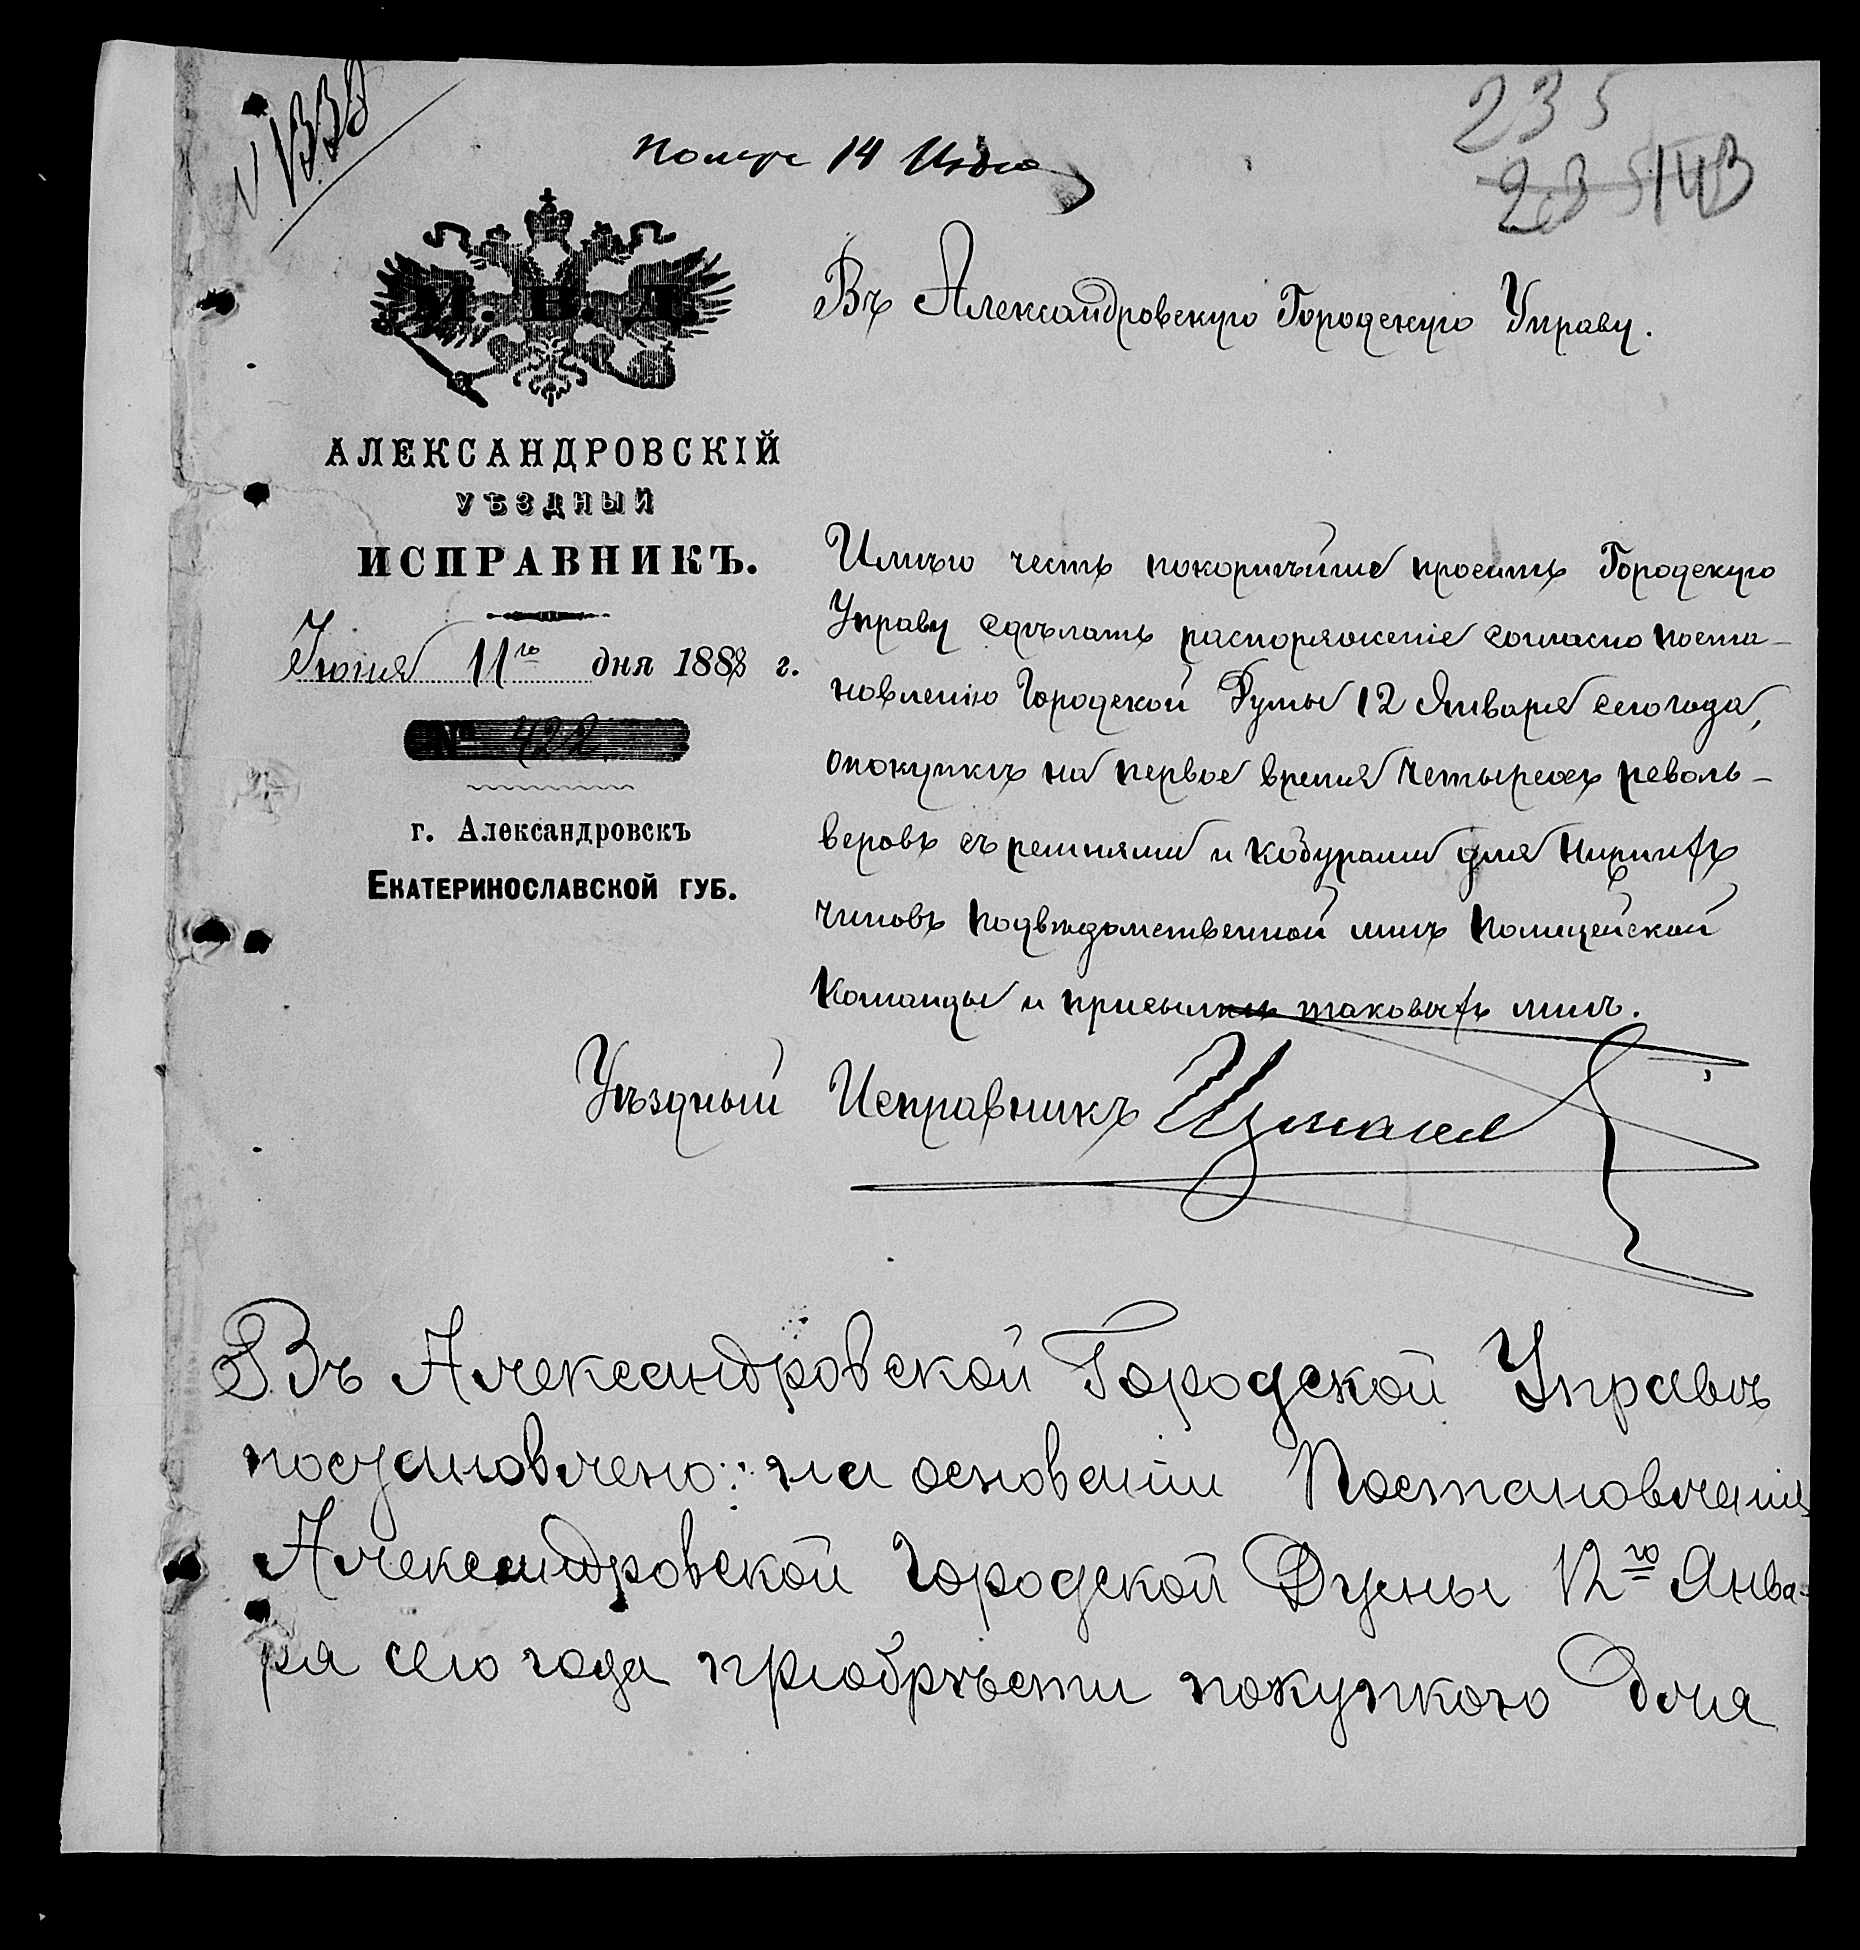 № 1338
Получе 14 Июня
235
235 143
М. В. Д.
Въ Александровскую Городскую Управу.
АЛЕКСАНДРОВСКІЙ
УѢЗДНЫЙ
ИСПРАВНИКЪ.
Іюня 11го дня 1883 г.
№ 422
г. Александровскъ
ЕКАТЕРИНОСЛАВСКОЙ ГУБ.
Имѣю честь покорнѣйше просить Городскую
Управу сдѣлать распоряженіе согласно поста-
новленію Городской Думы 12 Января сего года,
о покупкѣ на первое время четырехъ револь-
веровъ съ ремнями и кобурами для нижнихъ
чиновъ подвѣдомственной мнѣ полицейской
команды и присылкѣ таковыхъ мнѣ.
Уѣздный Исправникъ
Въ Александровской Городской Управѣ
постановлено: на основаніи Постановленія
Александровской Городской Думы 12го Янва-
ря сего года пріобрѣсти покупкою для